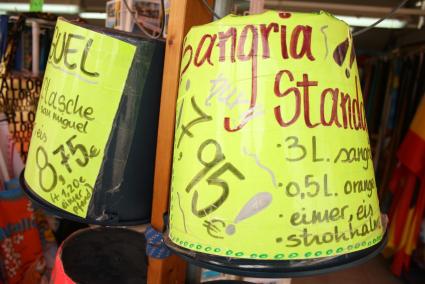 GUEL
flasche
san miguel
eis
8,75€
(+1,20€
eimer
pfand)
Sangria
pur
Stand
7,95€
· 3L. sang
· 0,5L. orang
· eimer, eis
· strohhalm